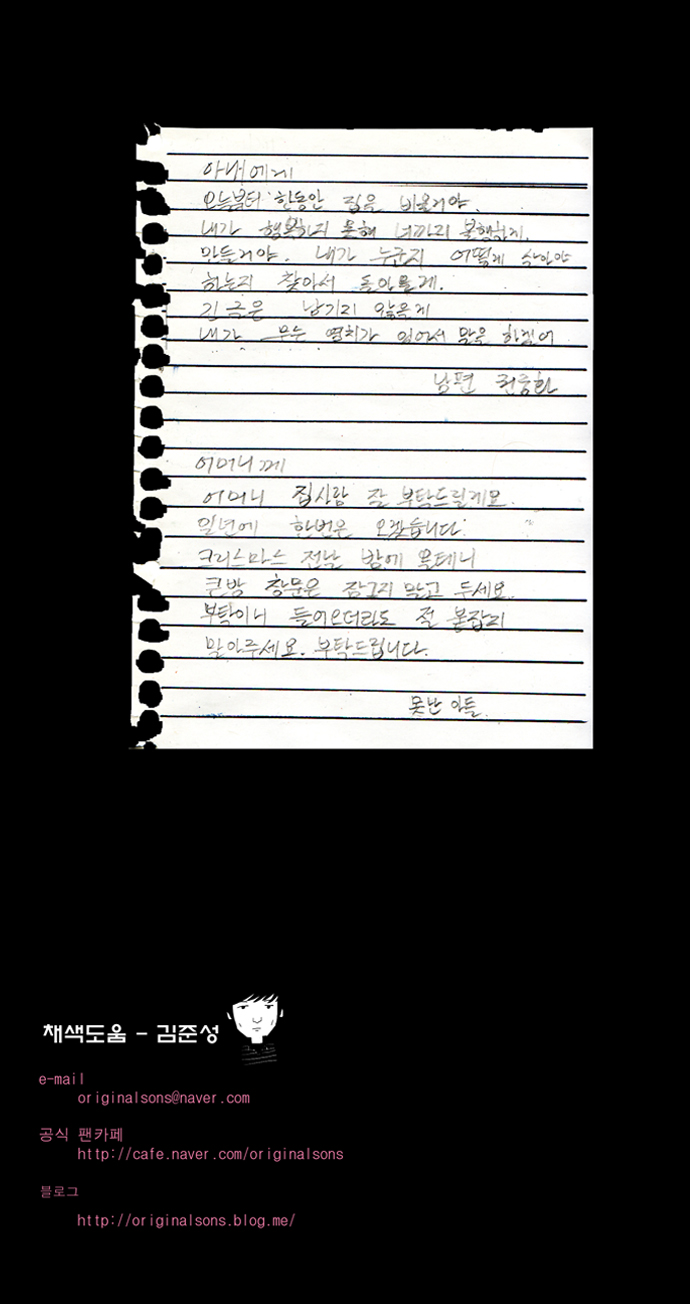 아내에게
오늘부터 한동안 집을 비울거야.
내가 행복하지 못해 너까지 불행하게.
만들거야. 내가 누군지 어떻게 살아야
하는지 찾아서 돌아올게.
긴 글은 남기지 않을게
내가 무슨 염치가 있어서 말을 하겠어
남편
어머니께
어머니 집사람 잘 부탁드릴게요.
일년에 한번은 오겠습니다.
크리스마스 전날 밤에 올테니
큰방 창문은 잠그지 말고 두세요.
부탁이니 들어오더라도 절 붙잡지
말아주세요. 부탁드립니다.
못난 아들.
채색도움 - 김준성
e-mail
originalsons@naver.com
공식 팬카페
http://cafe.naver.com/originalsons
블로그
http://originalsons.blog.me/